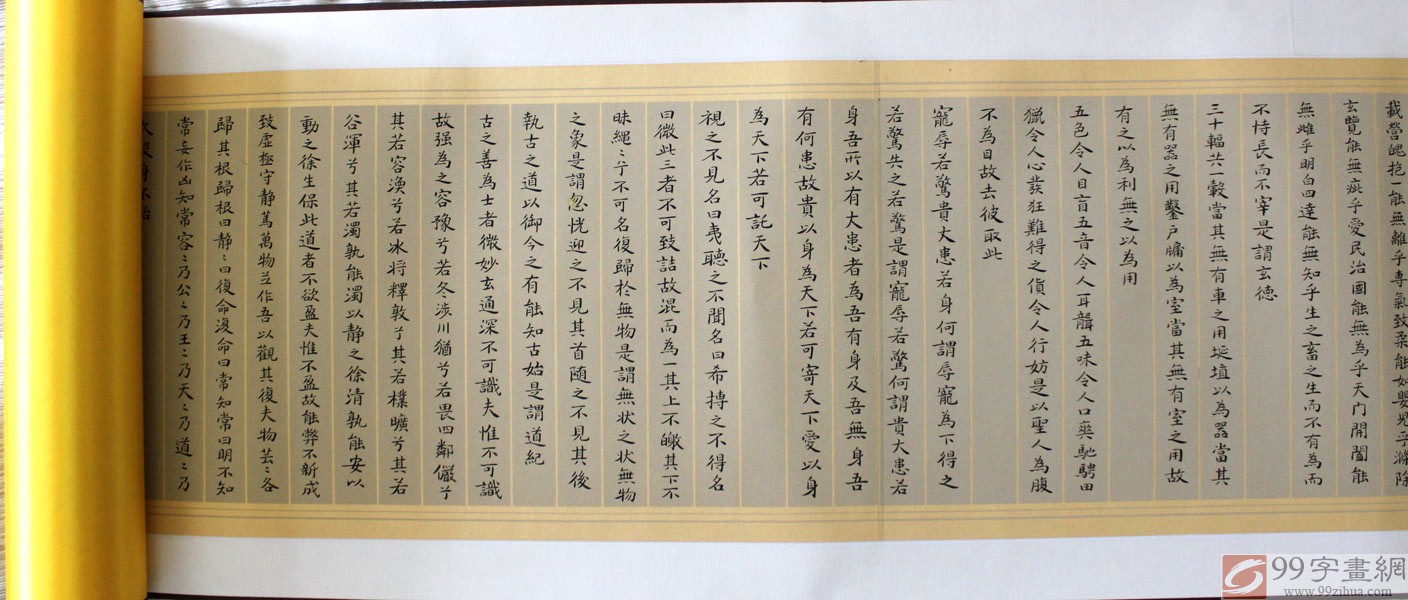 載營魄抱一能無離乎專氣致柔能如嬰兒乎滌除
玄覽能無疵乎愛民治國能無為乎天門開闔能
無雌乎明白四達能無知乎生之畜之生而不有為而
不恃長而不宰是謂玄德
三十輻共一轂當其無有車之用埏埴以為器當其
無有器之用鑿戶牖以為室當其無有室之用故
有之以為利無之以為用
五色令人目盲五音令人耳聾五味令人口爽馳騁田
獵令人心發狂難得之貨令人行妨是以聖人為腹
不為目故去彼取此
寵辱若驚貴大患若身何謂辱寵為下得之
若驚失之若驚是謂寵辱若驚何謂貴大患若
身吾所以有大患者為吾有身及吾無身吾
有何患故貴以身為天下若可寄天下愛以身
為天下若可託天下
視之不見名曰夷聽之不聞名曰希摶之不得名
曰微此三者不可致詰故混而為一其上不皦其下不
昧繩〻兮不可名復歸於無物是謂無狀之狀無物
之象是謂忽恍迎之不見其首隨之不見其後
執古之道以御今之有能知古始是謂道紀
古之善為士者微妙玄通深不可識夫惟不可識
故强為之容豫兮若冬涉川猶兮若畏四鄰儼兮
其若容渙兮若冰將釋敦兮其若樸曠兮其若
谷渾兮其若濁孰能濁以静之徐清孰能安以
動之徐生保此道者不欲盈夫惟不盈故能弊不新成
致虛極守静篤萬物並作吾以觀其復夫物芸〻各
歸其根歸根曰静〻曰復命復命曰常知常曰明不知
常妄作凶知常容〻乃公〻乃王〻乃天〻乃道〻乃
久沒身不殆
99字畫網
www.99zihua.com